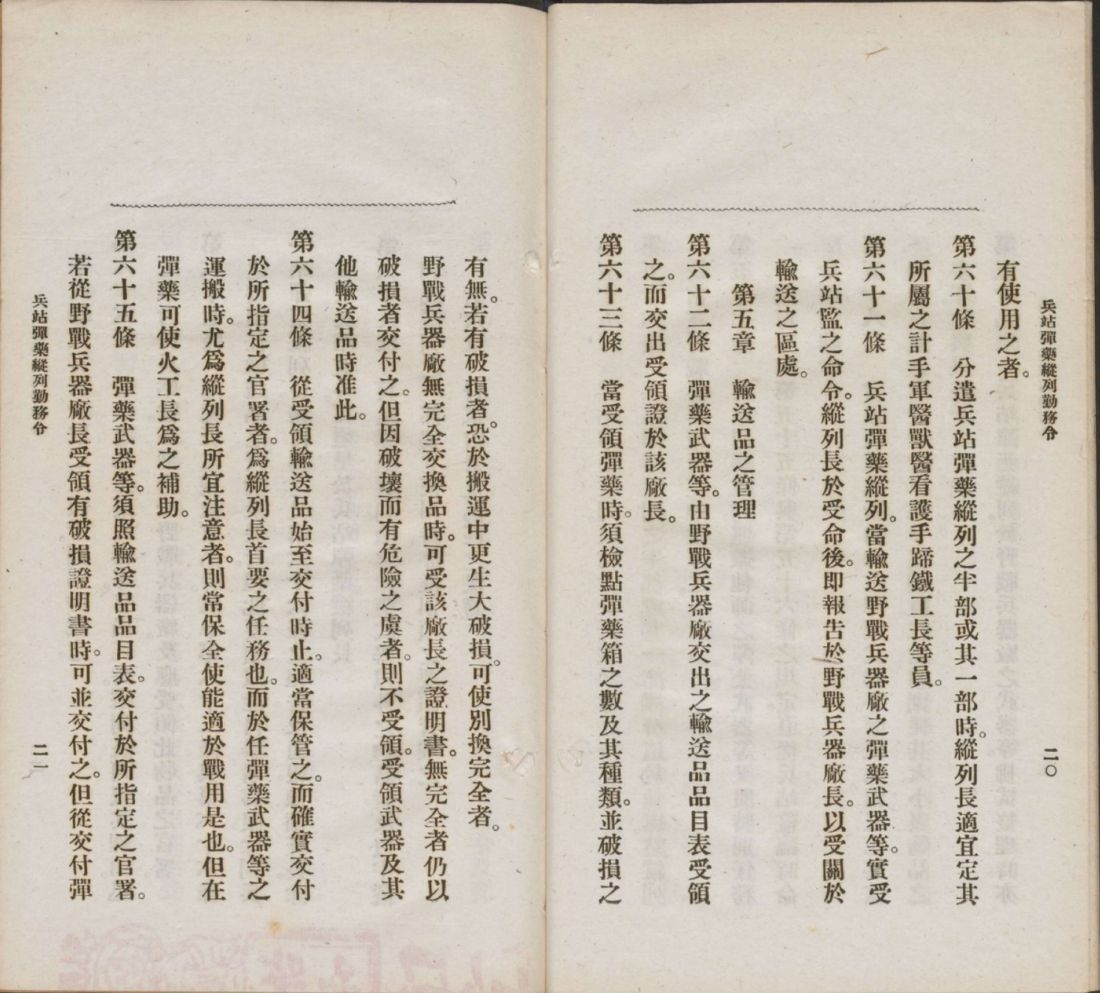 兵站彈藥縱列勤務令
二〇
有使用之者。
第六十條　分遣兵站彈藥縱列之半部或其一部時。縱列長適宜定其
所屬之計手軍醫獸醫看護手蹄鐵工長等員。
第六十一條　兵站彈藥縱列。當輸送野戰兵器廠之彈藥武器等。實受
兵站監之命令。縱列長於受命後。即報告於野戰兵器廠長。以受關於
輸送之區處。
第五章　輸送品之管理
第六十二條　彈藥武器等。由野戰兵器廠交出之輸送品品目表受領
之。而交出受領證於該廠長。
第六十三條　當受領彈藥時。須檢點彈藥箱之數及其種類。並破損之
有無。若有破損者。恐於搬運中更生大破損。可使別換完全者。
野戰兵器廠無完全交換品時。可受該廠長之證明書。無完全者仍以
破損者交付之。但因破壞而有危險之虞者。則不受領。受領武器及其
他輸送品時准此。
第六十四條　從受領輸送品始至交付時止。適當保管之。而確實交付
於所指定之官署者。爲縱列長首要之任務也。而於任彈藥武器等之
運搬時。尤爲縱列長所宜注意者。則當保全使能適於戰用是也。但在
彈藥可使火工長爲之補助。
第六十五條　彈藥武器等。須照輸送品品目表。交付於所指定之官署。
若從野戰兵器廠長受領有破損證明書時。可並交付之。但從交付彈
兵站彈藥縱列勤務令
二一